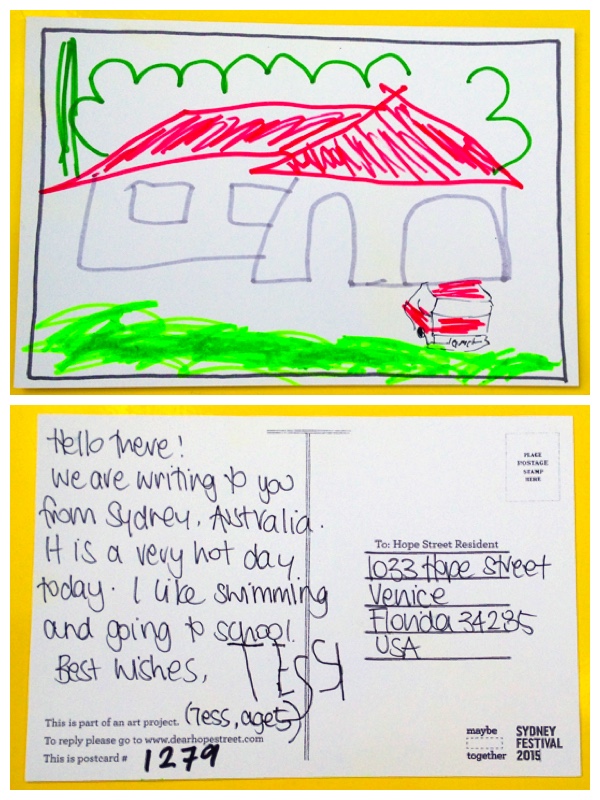 Hello there!
We are writing to you
from Sydney, Australia.
It is a very hot day
today. I like swimming
and going to school.
Best wishes,
TESS
(Tess, age 5)
This is part of an art project.
To reply please go to www.dearhopestreet.com
This is postcard # 1279
PLACE
POSTAGE
STAMP
HERE
To: Hope Street Resident
1033 Hope Street
Venice
Florida 34285
USA
maybe
together
SYDNEY
FESTIVAL
2015